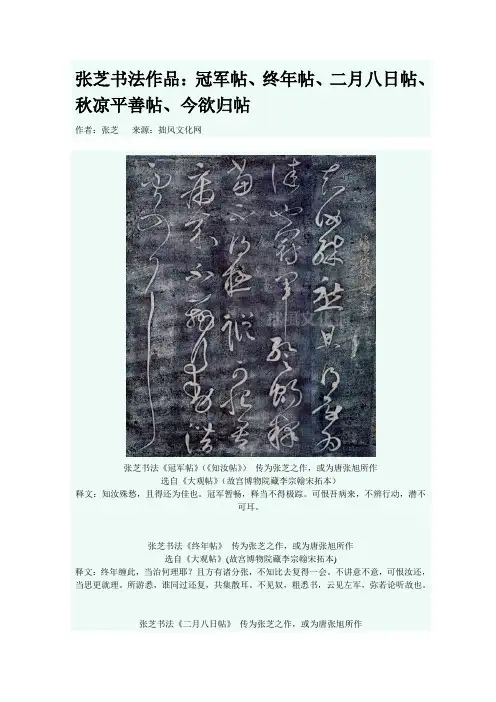 张芝书法作品：冠军帖、终年帖、二月八日帖、
秋凉平善帖、今欲归帖
作者：张芝 来源：拙风文化网
知汝殊愁且得还为
佳也冠军暂畅释
当不得极踪可恨吾
病来不辨行动潜
不可耳
张芝书法《冠军帖》（《知汝帖》） 传为张芝之作，或为唐张旭所作
选自《大观帖》（故宫博物院藏李宗翰宋拓本）
释文：知汝殊愁，且得还为佳也。冠军暂畅，释当不得极踪。可恨吾病来，不辨行动，潜不
可耳。
张芝书法《终年帖》 传为张芝之作，或为唐张旭所作
选自《大观帖》(故宫博物院藏李宗翰宋拓本)
释文：终年缠此，当治何理耶？且方有诸分张，不知比去复得一会。不讲意不意，可恨汝还，
当思更就理。所游悉，谁同过还复，共集散耳。不见奴，粗悉书，云见左军，弥若论听故也。
张芝书法《二月八日帖》 传为张芝之作，或为唐张旭所作